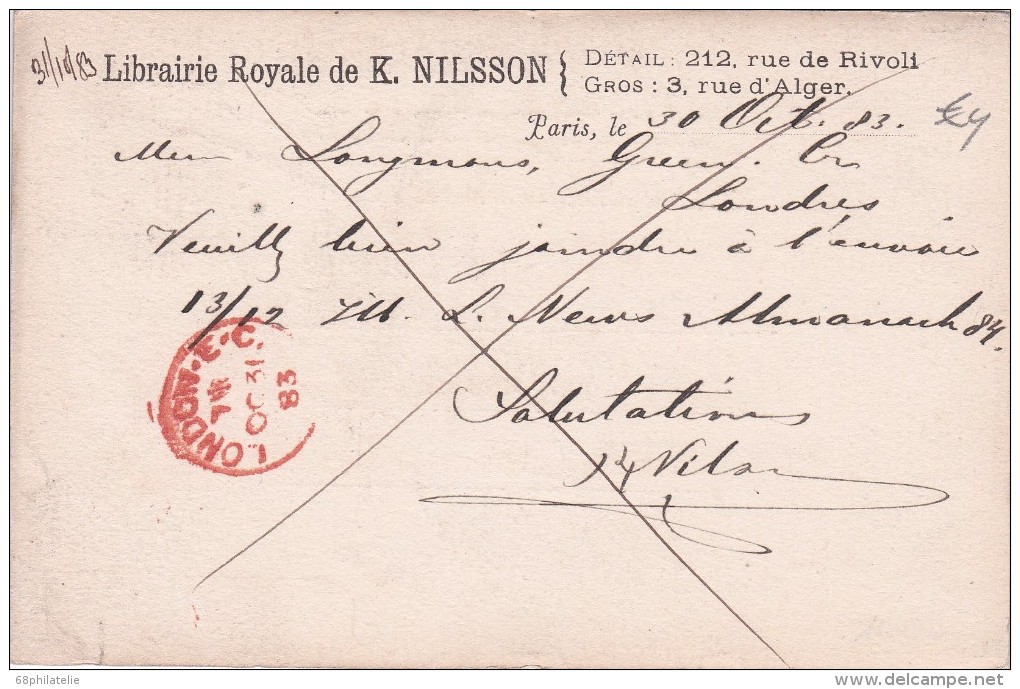 31/10/83
Librairie Royale de K. NILSSON { DÉTAIL : 212, rue de Rivoli
GROS : 3, rue d'Alger.
Paris, le 30 Oct. 83.
Longmans, Green, Co
Londres
Veuillz bien joindre à l'envoie
13/12 Ill. L. News Almanach 84.
Salutations
Nilsson
LONDON. E. C.
OC 31
83
68philatelie
delcampe.net